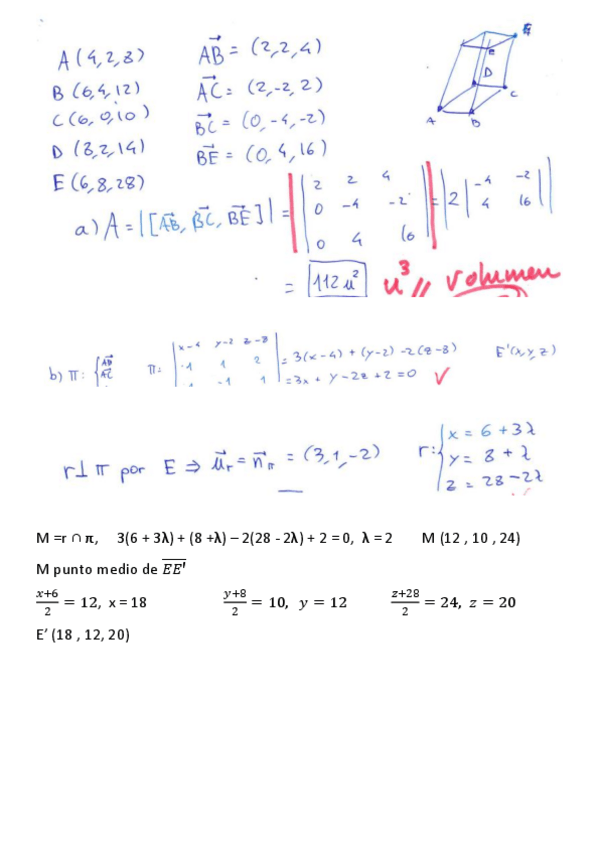 A (4,2,8) AB⃗ = (2,2,4)
B (6,4,12) AC⃗ = (2,-2,2)
C (6,0,10) BC⃗ = (0,-4,-2)
D (8,2,14) BE⃗ = (0,4,16)
E (6,8,28)
A B C D E
a) A = |[AB⃗, BC⃗, BE⃗]| = || 2 2 4 ; 0 -4 -2 ; 0 4 16 || = |2 | -4 -2 ; 4 16 ||
= 112 u² u³ // Volumen
b) π: { AB⃗ ; AC⃗ π: | x-4 y-2 z-8 ; 1 1 2 ; 1 -1 1 | = 3(x-4) + (y-2) -2(z-8) E'(x,y,z)
= 3x + y - 2z + 2 = 0 √
r ⊥ π por E ⇒ u⃗r = n⃗π = (3,1,-2) r: { x = 6 + 3λ ; y = 8 + λ ; z = 28 - 2λ
M =r ∩ π, 3(6 + 3λ) + (8 +λ) – 2(28 - 2λ) + 2 = 0, λ = 2 M (12 , 10 , 24)
M punto medio de EE'
x+6/2 = 12, x = 18 y+8/2 = 10, y = 12 z+28/2 = 24, z = 20
E’ (18 , 12, 20)